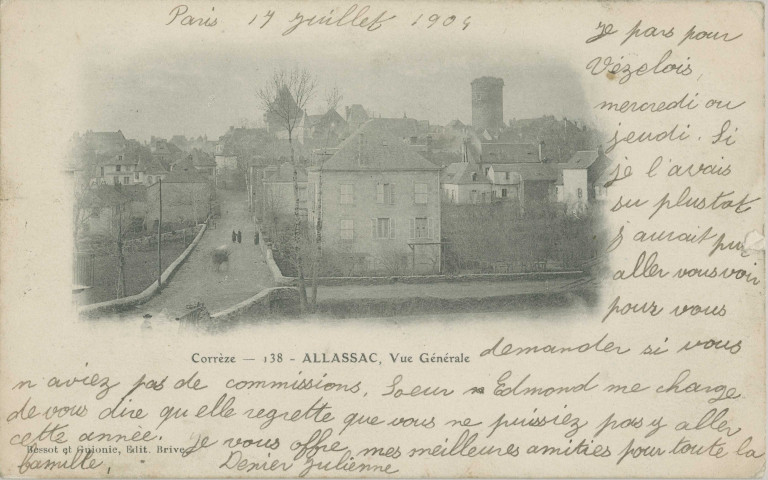 Paris 17 juillet 1904
je pars pour
Vézelois,
mercredi ou
jeudi. Si
je l'avais
su plustot
j'aurait pu
aller vous voir
pour vous
demander si vous
n'aviez pas de commissions. Soeur Edmond me charge
de vous dire qu'elle regrette que vous ne puissiez pas y aller
cette année. Je vous offre mes meilleures amities pour toute la
famille,
Denier Julienne
Corrèze — 138 - ALLASSAC, Vue Générale
Bessot et Guionie, Edit. Brive